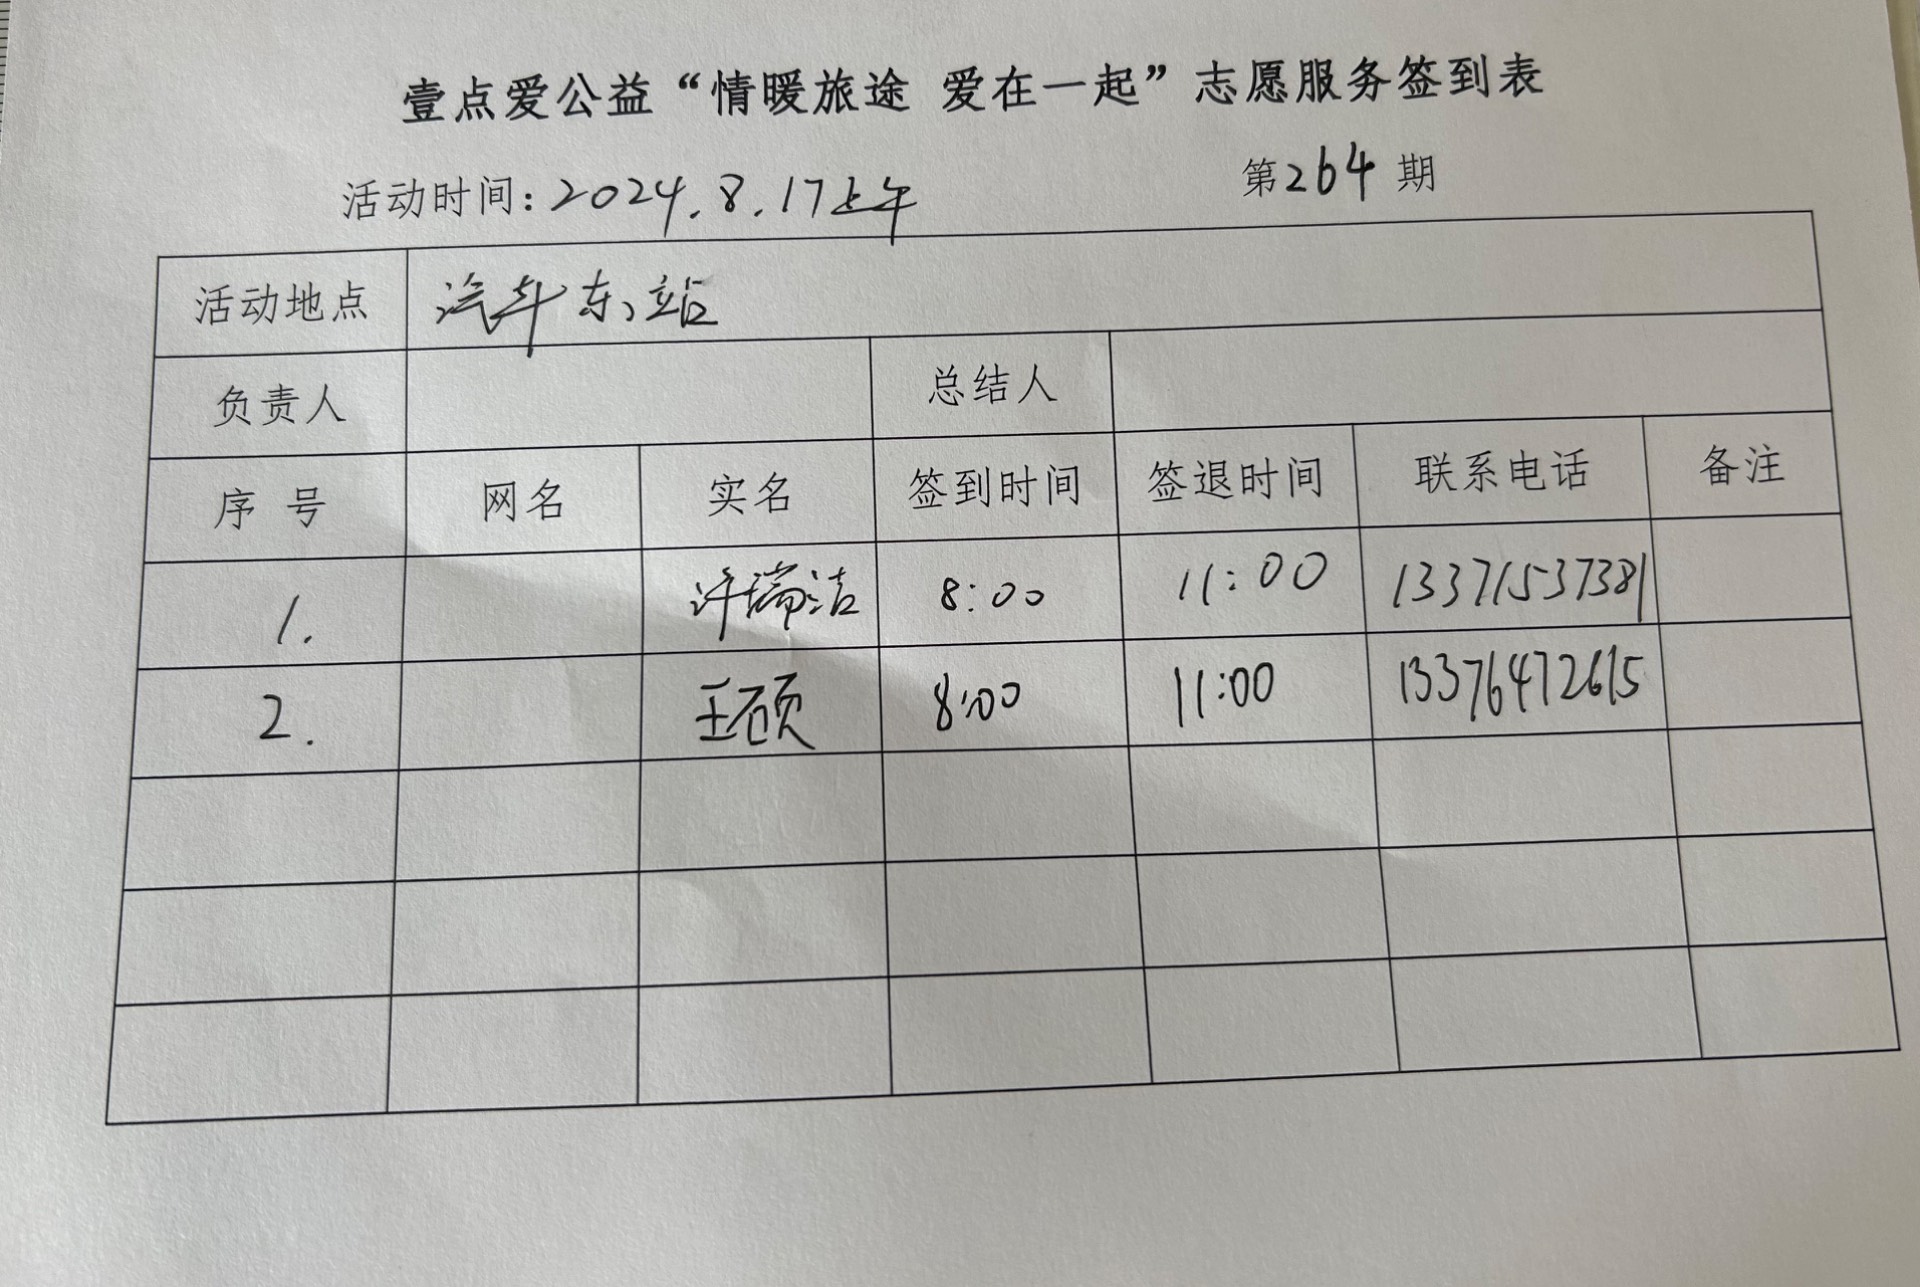 壹点爱公益“情暖旅途 爱在一起”志愿服务签到表
活动时间：2024.8.17上午 第264期
活动地点 汽车东站
负责人 总结人
序号 网名 实名 签到时间 签退时间 联系电话 备注
1. 许瑞洁 8:00 11:00 13371537381
2. 王硕 8:00 11:00 13376472615